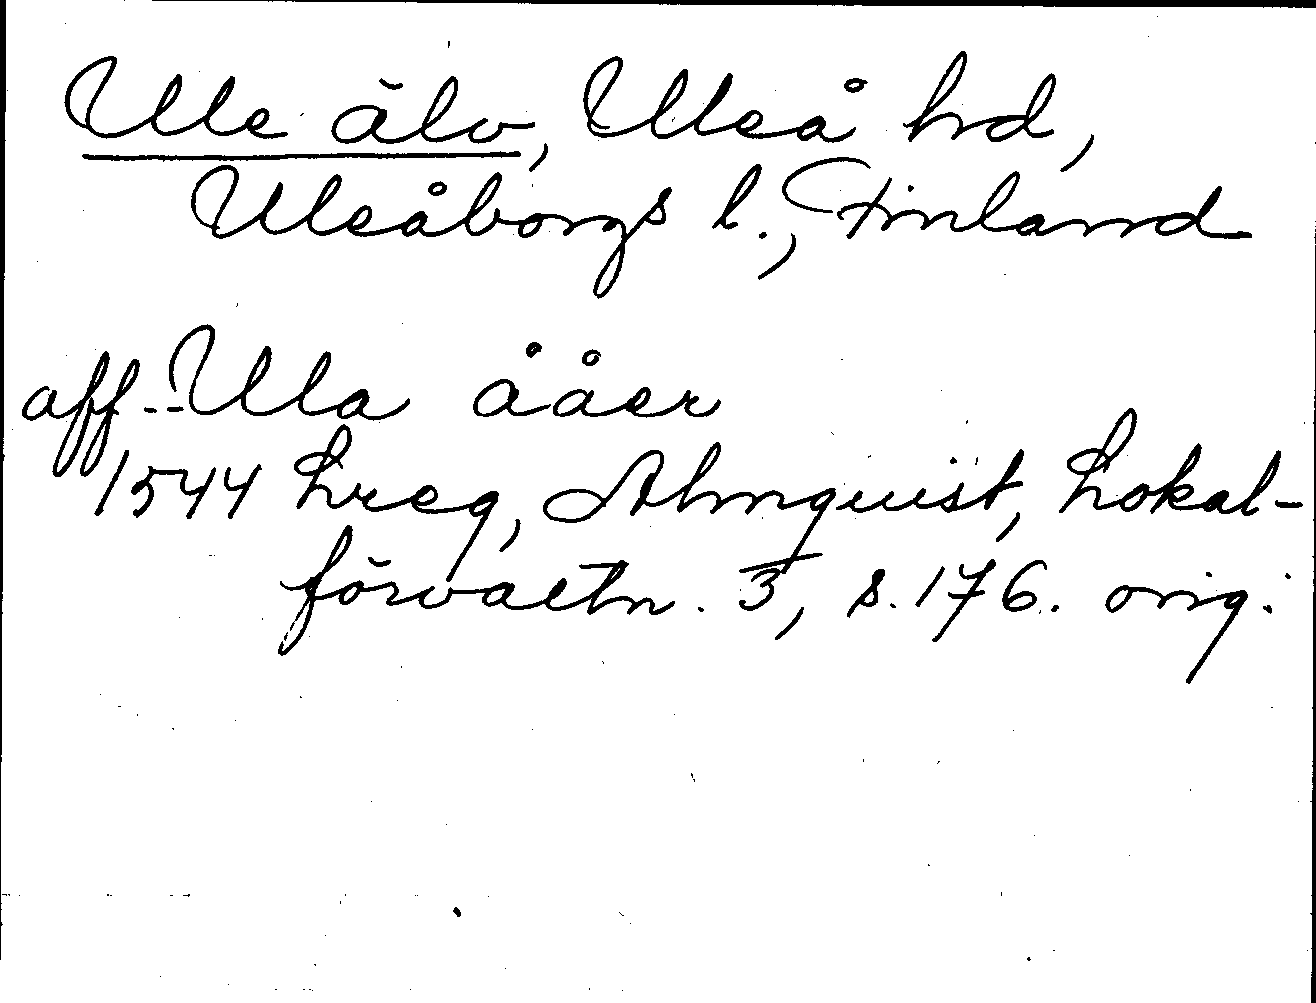 Ule älv, Uleå hd,
Uleåborgs l., Finland
aff -- Ula ååer
1544 Lreg, Almquist, Lokal-
förvaltn. 3, s. 176. orig.